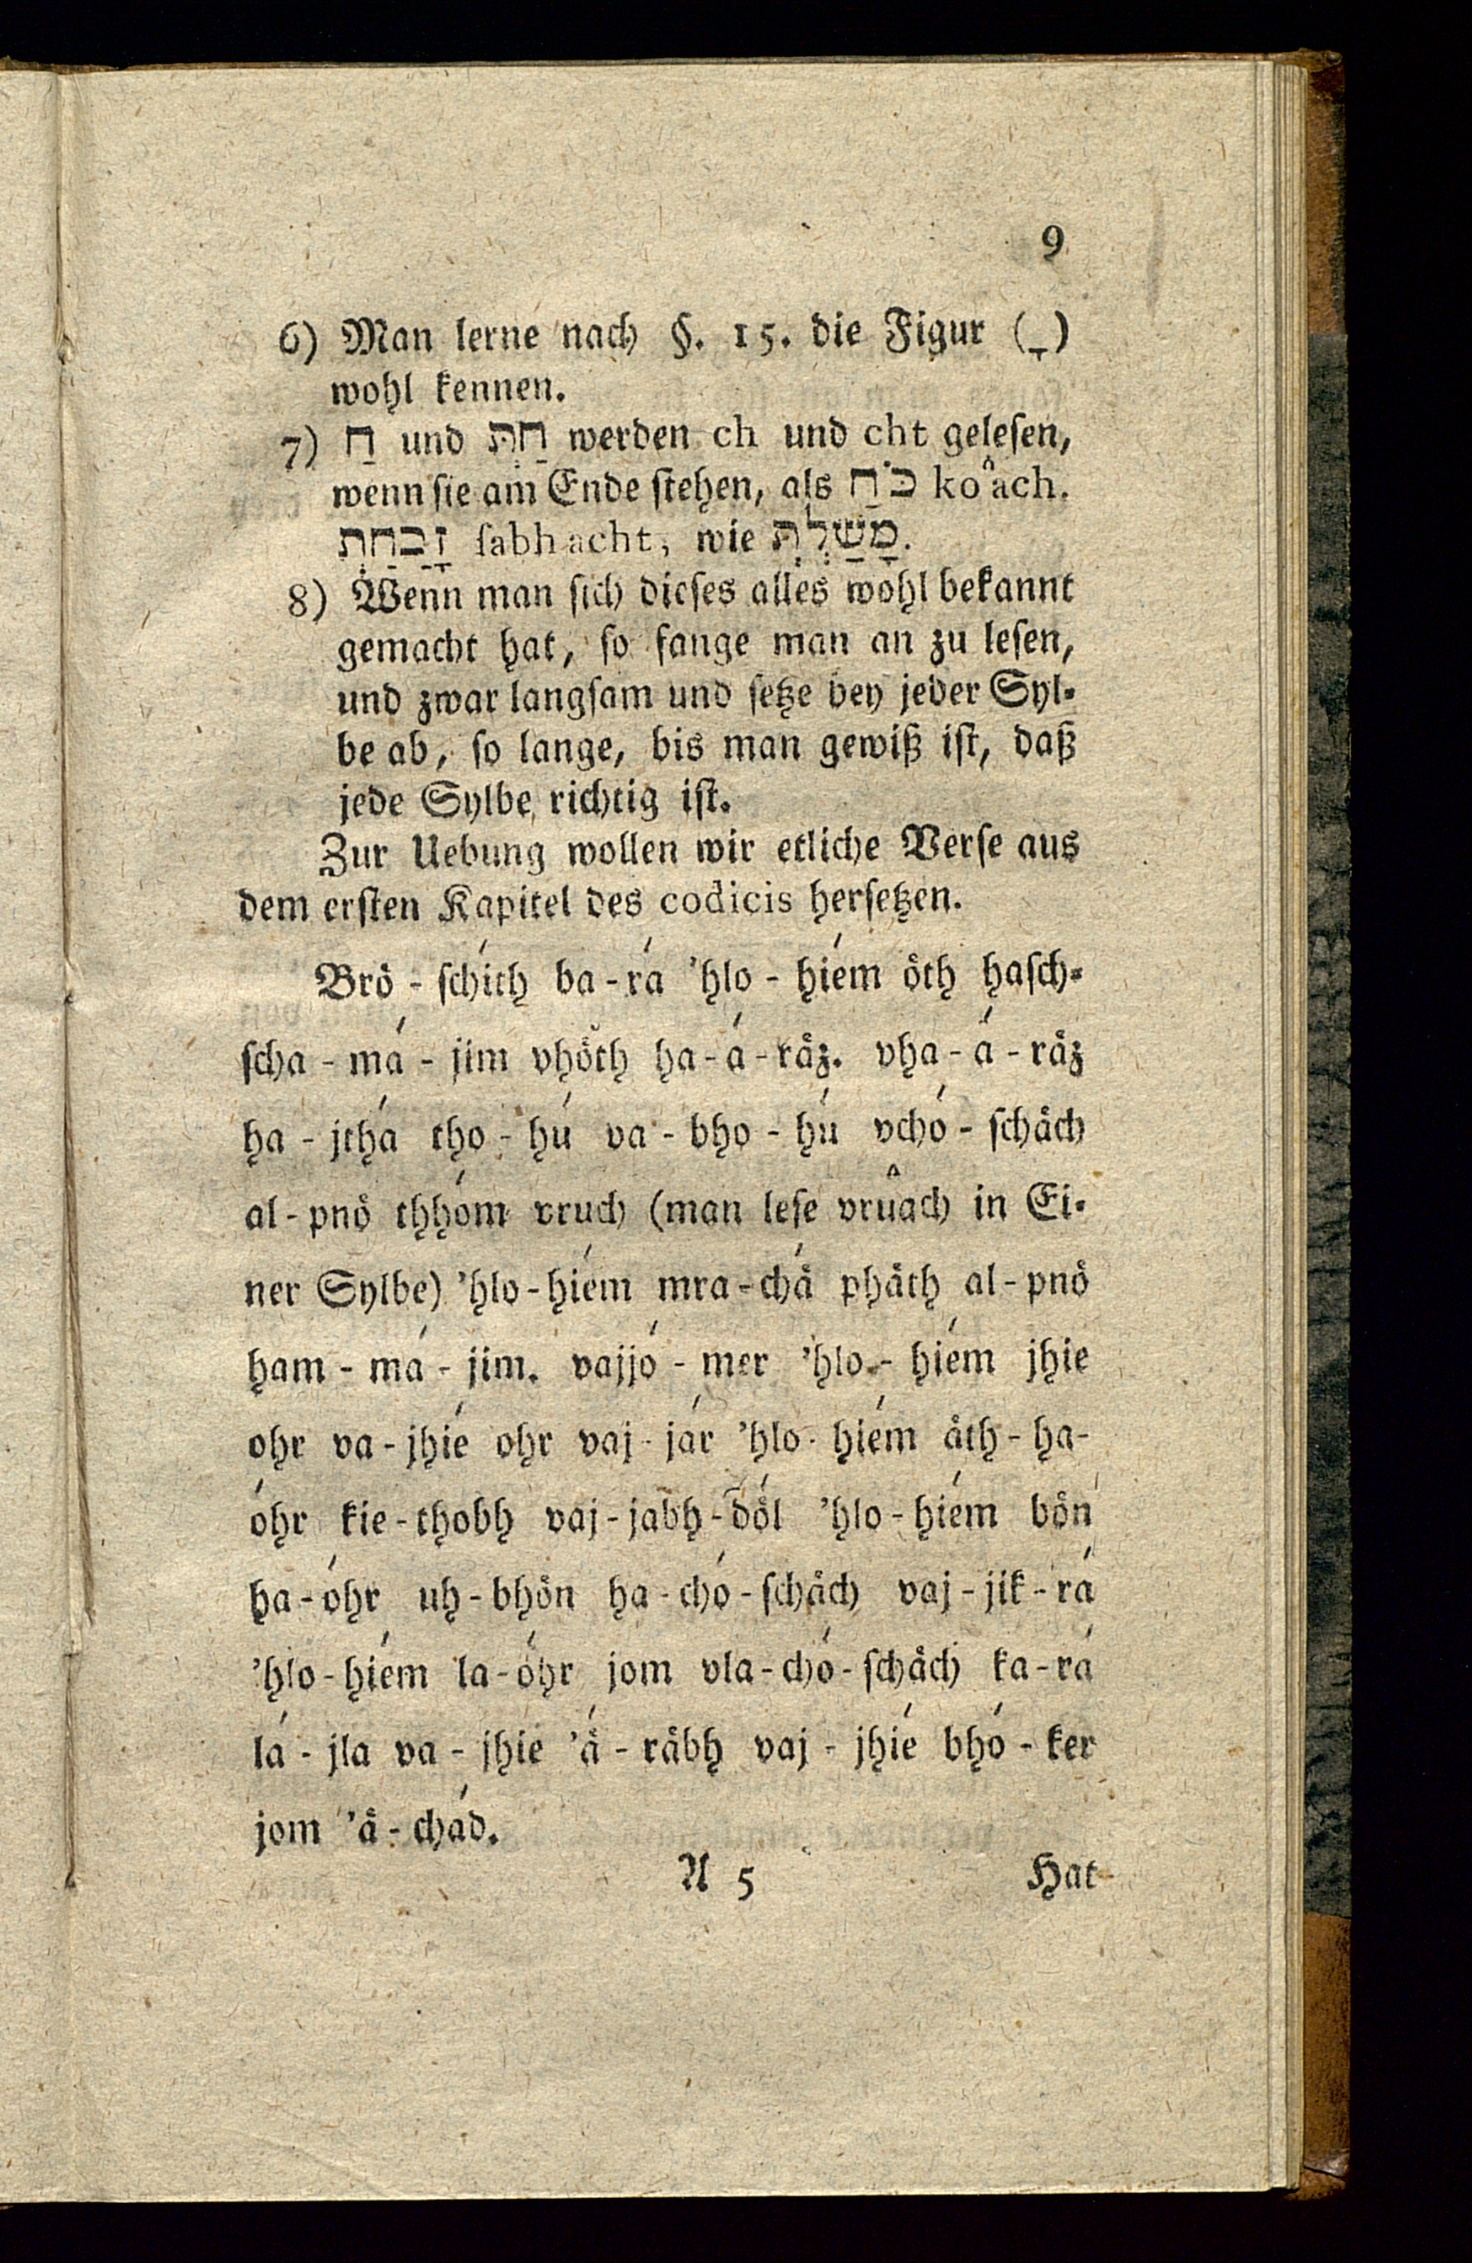 9
6) Man lerne nach §. 15. die Figur (ָ)
wohl kennen.
7) חַ und חַתְּ werden ch und cht gelesen,
wenn sie am Ende stehen, als כֹּחַ ko^ach.
זָבַחַתְּ sabhacht, wie מָשַׁלְתְּ.
8) Wenn man sich dieses alles wohl bekannt
gemacht hat, so fange man an zu lesen,
und zwar langsam und setze bey jeder Syl-
be ab, so lange, bis man gewiß ist, daß
jede Sylbe richtig ist.
Zur Uebung wollen wir etliche Verse aus
dem ersten Kapitel des codicis hersetzen.
Brö - schíth ba - rá 'hlo - hiém öth hasch-
scha - má - jim vhöth ha - á - räz. vha - á - räz
ha - jthá tho - hú va - bho - hú vchó - schäch
al - pnö thhóm vruch (man lese vruâch in Ei-
ner Sylbe) 'hlo - hiém mra - chä́ phäth al - pnö
ham - má - jim. vajjó - mer 'hlo - hiém jhie
ohr va - jhié ohr vaj - jár 'hlo - hiém äth - ha-
óhr kie - thobh vaj - jabh - dö́l 'hlo - hiém bön
ha - óhr uh - bhön ha - chó - schäch vaj - jik - rá
'hlo - hiém la - óhr jom vla - chó - schäch ka - rá
lá - jla va - jhie 'ä́ - räbh vaj - jhié bhó - ker
jom 'ä - chád.
A 5 Hat